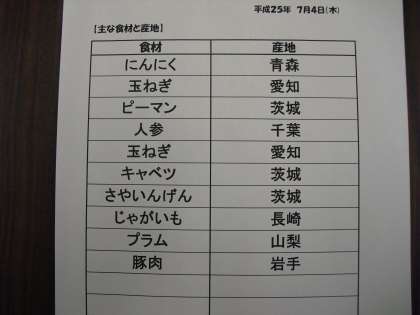 平成25年 7月4日(木)
【主な食材と産地】
食材 産地
にんにく 青森
玉ねぎ 愛知
ピーマン 茨城
人参 千葉
玉ねぎ 愛知
キャベツ 茨城
さやいんげん 茨城
じゃがいも 長崎
プラム 山梨
豚肉 岩手